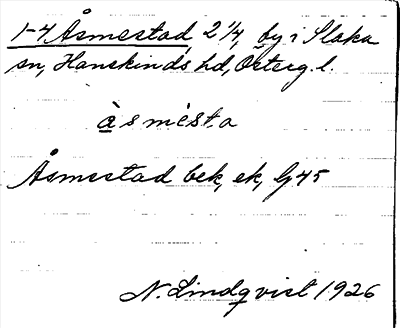 1-4 Åsmestad 2 1/4, by i Slaka
sn, Hanekinds hd, Österg. l.
àsmèsta
Åsmestad bek, ek, Gj 45
N. Lindqvist 1926